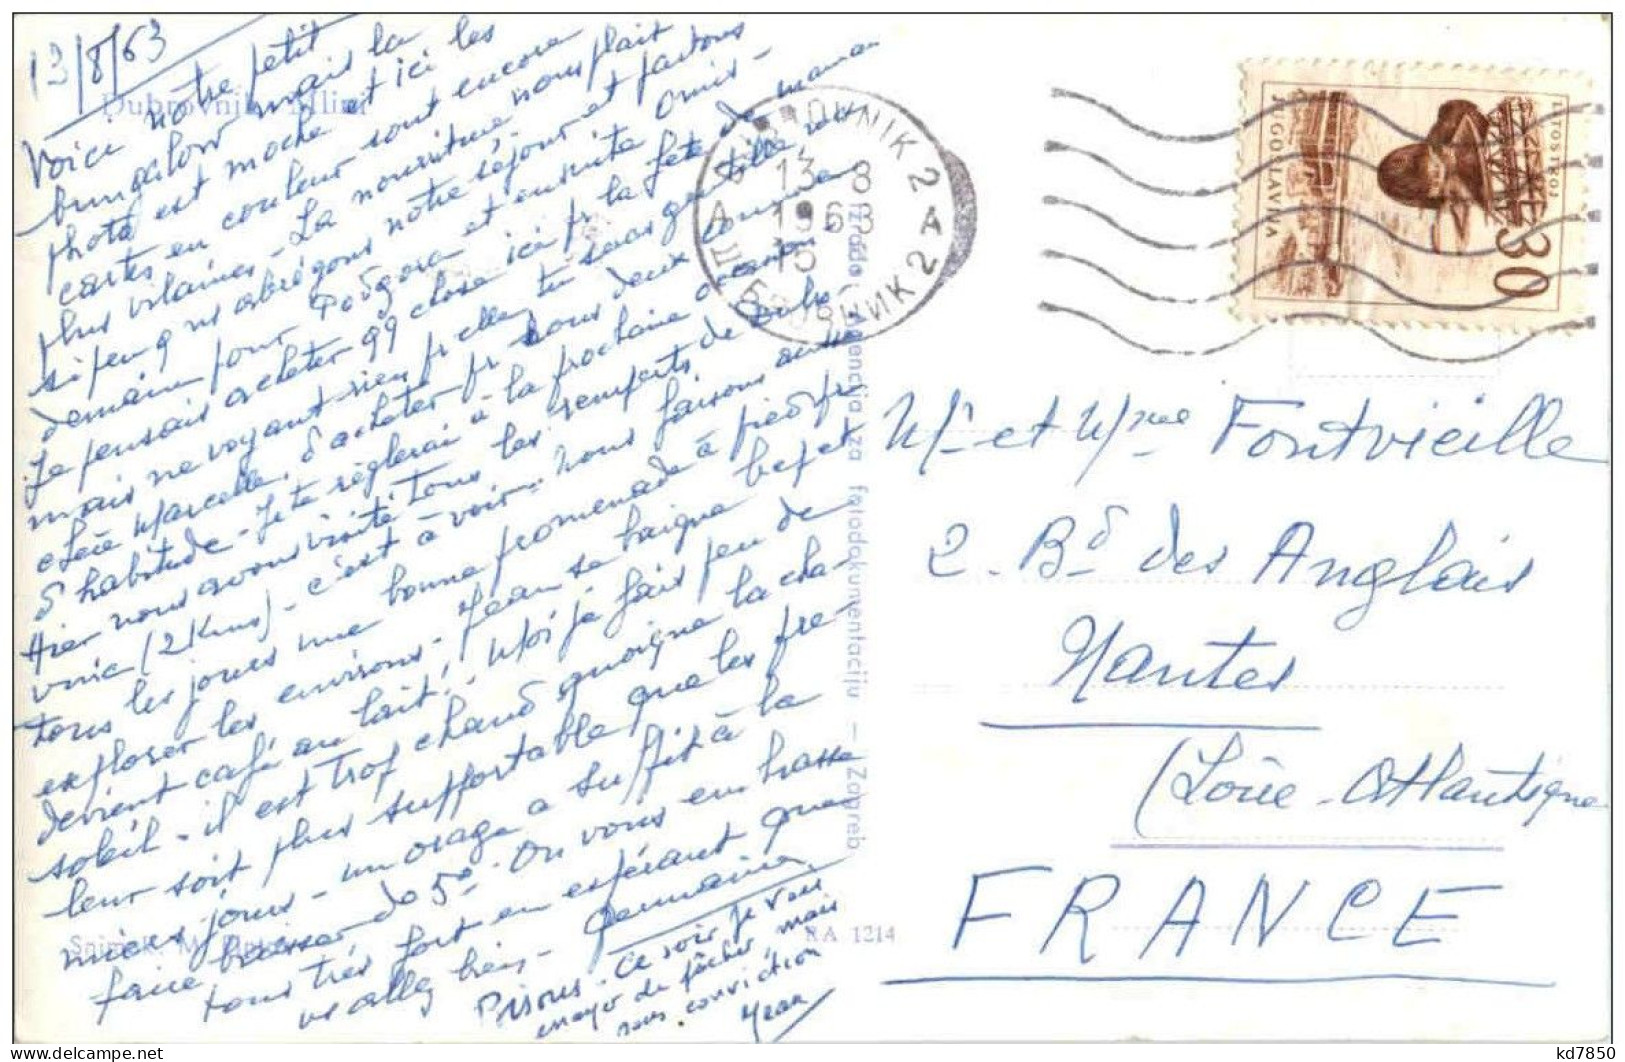 13/8/63
Dubrovnik - Mlini
Voici notre petit
bungalow mais la
photo est moche et ici les
cartes en couleur sont encore
plus vilaines - La nourriture nous plait
si peu q ns abrégons notre séjour et partons
demain pour Podgora et ensuite Omis -
Je pensais acheter qq chose ici pr la fête de maman
mais ne voyant rien pr elle, tu seras gentille
chère Marcelle, d'acheter pr nous deux comme
d'habitude - Je te règlerai à la prochaine occasion
Hier nous avons visité tous les remparts de Dubro-
vnic (2 Kms) - c'est à voir - nous faisons aussi
tous les jours une bonne promenade à pied pr
explorer les environs - Jean se baigne bcp et
devient café au lait! Moi je fais peu de
soleil - il est trop chaud quoique la cha-
leur soit plus supportable que les pre-
miers jours - un orage a suffit à la
faire baisser de 5° - On vous embrasse
tous très fort en espérant que
vs allez bien - Germaine
Disons - Ce soir je vais
essayer de pêcher mais
sans conviction
Jean
Snimak: M.
RA 1214
Izrado: Agencija za fotodokumentaciju - Zagreb
DUBROVNIK 2
13 8
1963
15
A
A
ДУБРОВНИК 2
LITOSTROJ
JUGOSLAVIJA
30
Mr et Mme Fontvieille
2. Bd des Anglais
Nantes
(Loire-Atlantique
FRANCE
kd7850